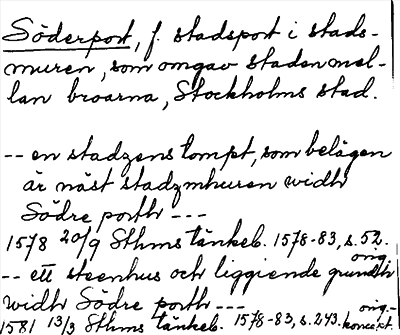 Söderport, f. stadsport i stads-
muren, som omgav staden mel-
lan broarna, Stockholms stad.
-- en stadzens tompt, som belägen
är näst stadzmhuren widh
Södre porth ---
1578 20/9 Sthms tänkeb. 1578-83, s. 52.
orig.
-- ett steenhus och liggiende grundh
widh Södre porth ---
1581 13/3 Sthms tänkeb. 1578-83, s. 243. orig.-koncept.